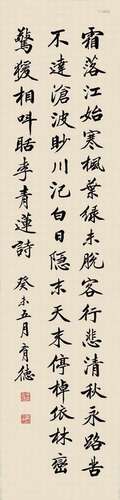 霜落江始寒楓葉綠未脫客行悲清秋永路苦
不達滄波眇川汜白日隱末天末停棹依林巒
驚猨相叫聒李青蓮詩 癸未五月育德